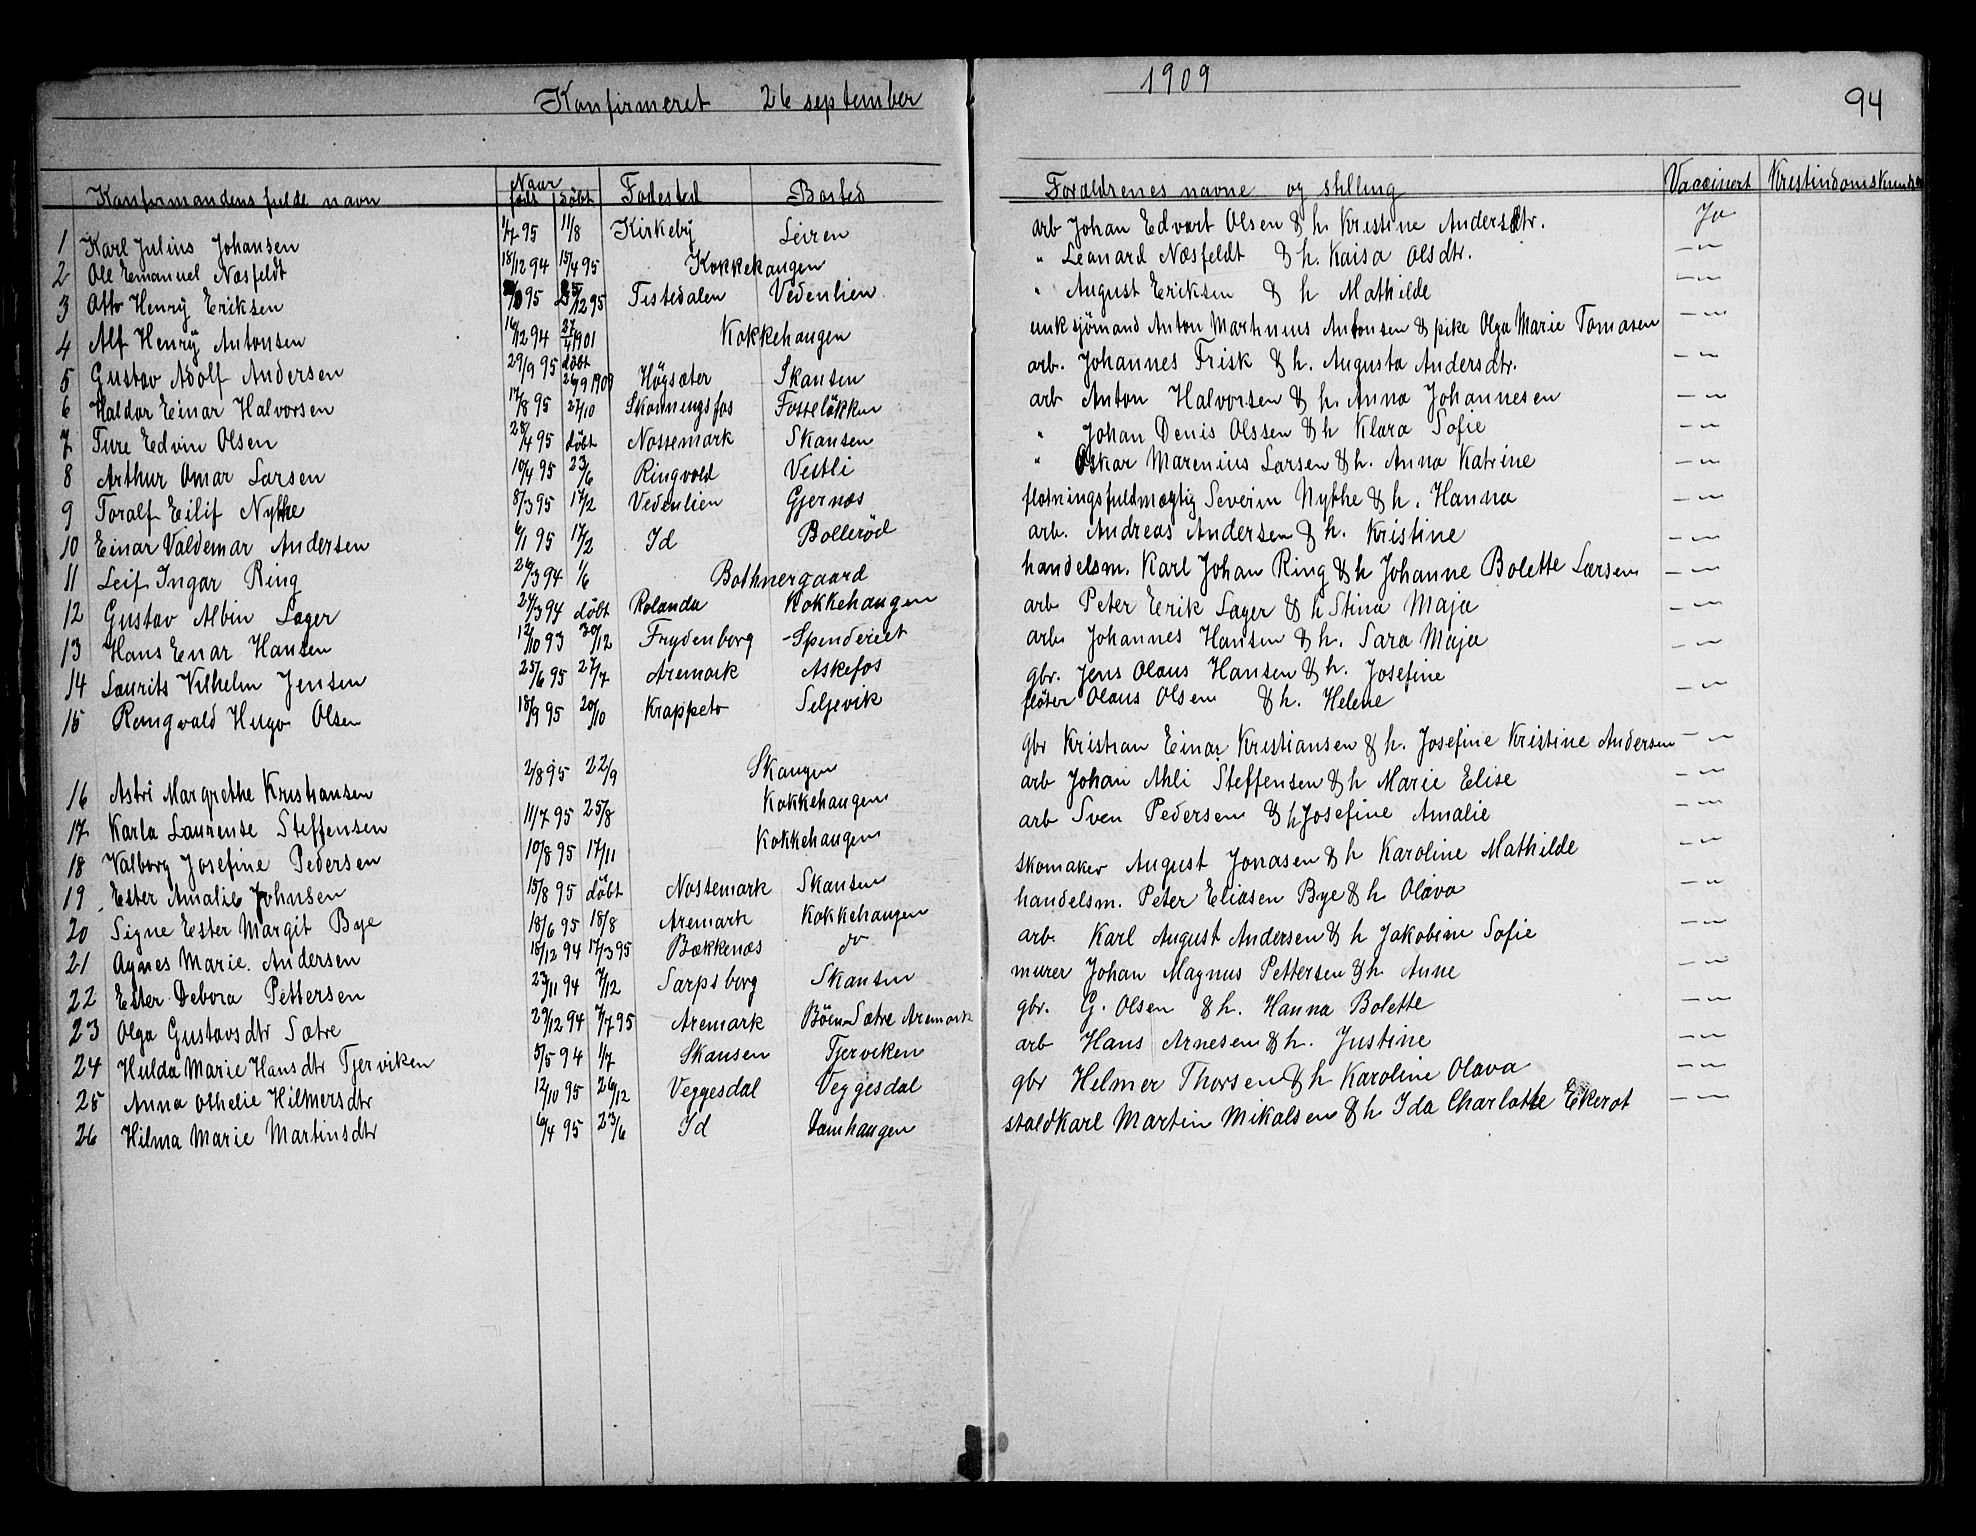 Konfirmeret 26 september 1909
94
Konfirmandens fulde navn | Naar født | døbt | Fødested | Bosted | Forældrenes navne og stilling | Vaccinert | Kristindomskund
1 Karl Julius Johansen 1/7 95 11/8 Kirkeby Leiren arb Johan Edvart Olsen & h. Kristine Andersdtr. Ja
2 Ole Emanuel Næsfeldt 18/12 94 15/4 95 Kokkehaugen " Leonard Næsfeldt & h. Kaisa Olsdtr. — " —
3 Otto Henry Eriksen 95 25/12 95 Tistedalen Vedenlien " August Eriksen & h Mathilde — " —
4 Alf Henry Antonsen 16/12 94 27/4 1901 Kokkehaugen enk sjömand Anton Martinius Antonsen & pike Olga Marie Tomasen — " —
5 Gustav Adolf Andersen 29/9 95 døbt 26/9 1909 Högsæter Skansen arb. Johannes Frisk & h. Augusta Andersdtr. — " —
6 Haldor Einar Halvorsen 17/8 95 27/10 Skonningsfos Fosseløkken arb Anton Halvorsen & h. Anna Johannesen — " —
7 Ture Edvin Olsen 28/4 95 døbt Nossemark Skansen " Johan Denis Olssen & h Klara Sofie — " —
8 Arthur Omar Larsen 10/4 95 23/6 Ringvold Vestli " Oskar Marenius Larsen & h. Anna Katrine — " —
9 Toralf Eilif Nythe 8/3 95 17/2 Vedenlien Gjernæs fløtningsfuldmægtig Severin Nythe & h. Hanna — " —
10 Einar Valdemar Andersen 6/1 95 17/2 Id Bolleröd arb. Andreas Andersen & h. Kristine — " —
11 Leif Ingar Ring 26/3 94 1/6 Bothnergaard handelsm. Karl Johan Ring & h Johanne Bolette Larsen — " —
12 Gustav Albin Lager 24/3 94 døbt Rolanda Kokkehaugen arb Peter Erik Lager & h Stina Maja — " —
13 Hans Einar Hansen 12/10 93 30/12 Frydenborg Spenderiet arb. Johannes Hansen & h. Sara Maja — " —
14 Laurits Vilhelm Jensen 25/6 95 27/7 Aremark Askefos gbr. Jens Olaus Hansen & h. Josefine — " —
15 Reingvald Hugo Olsen 18/9 95 20/10 Krappeto Seljevik fløter Olaus Olsen & h. Helene — " —
16 Astri Margrethe Kristiansen 2/8 95 22/9 Skaugen gbr Kristian Einar Kristiansen & h. Josefine Kristine Andersen — " —
17 Karla Laurense Steffensen 11/7 95 25/8 Kokkehaugen arb Johan Ahli Steffensen & h Marie Elise — " —
18 Valborg Josefine Pedersen 10/8 95 17/11 Kokkehaugen arb Sven Pedersen & h Josefine Amalie — " —
19 Ester Amalie Johnsen 15/8 95 døbt Nossemark Skansen skomaker August Jonasen & h Karoline Mathilde — " —
20 Signe Ester Margit Bye 18/6 95 18/8 Aremark Kokkehaugen handelsm. Peter Eliasen Bye & h. Olava — " —
21 Agnes Marie. Andersen 18/12 94 17/3 95 Bækkenæs do arb. Karl August Andersen & h Jakobine Sofie — " —
22 Ester Debora Pettersen 23/11 94 7/12 Sarpsborg Skansen murer Johan Magnus Pettersen & h. Anne — " —
23 Olga Gustavsdtr Sætre 29/12 94 7/7 95 Aremark Böen Sætre Aremark gbr. G. Olsen & h. Hanna Bolette — " —
24 Hulda Marie Hansdtr Tjerviken 5/5 94 1/7 Skansen Tjerviken arb Hans Arnesen & h. Justine — " —
25 Anna Othelie Hilmersdtr 12/10 95 26/12 Veggesdal Veggesdal gbr Helmer Thorsen & h Karoline Olava — " —
26 Hilma Marie Martinsdtr 6/4 95 23/6 Id Damhaugen staldkarl Martin Mikalsen & h Ida Charlotte Ekerot — " —